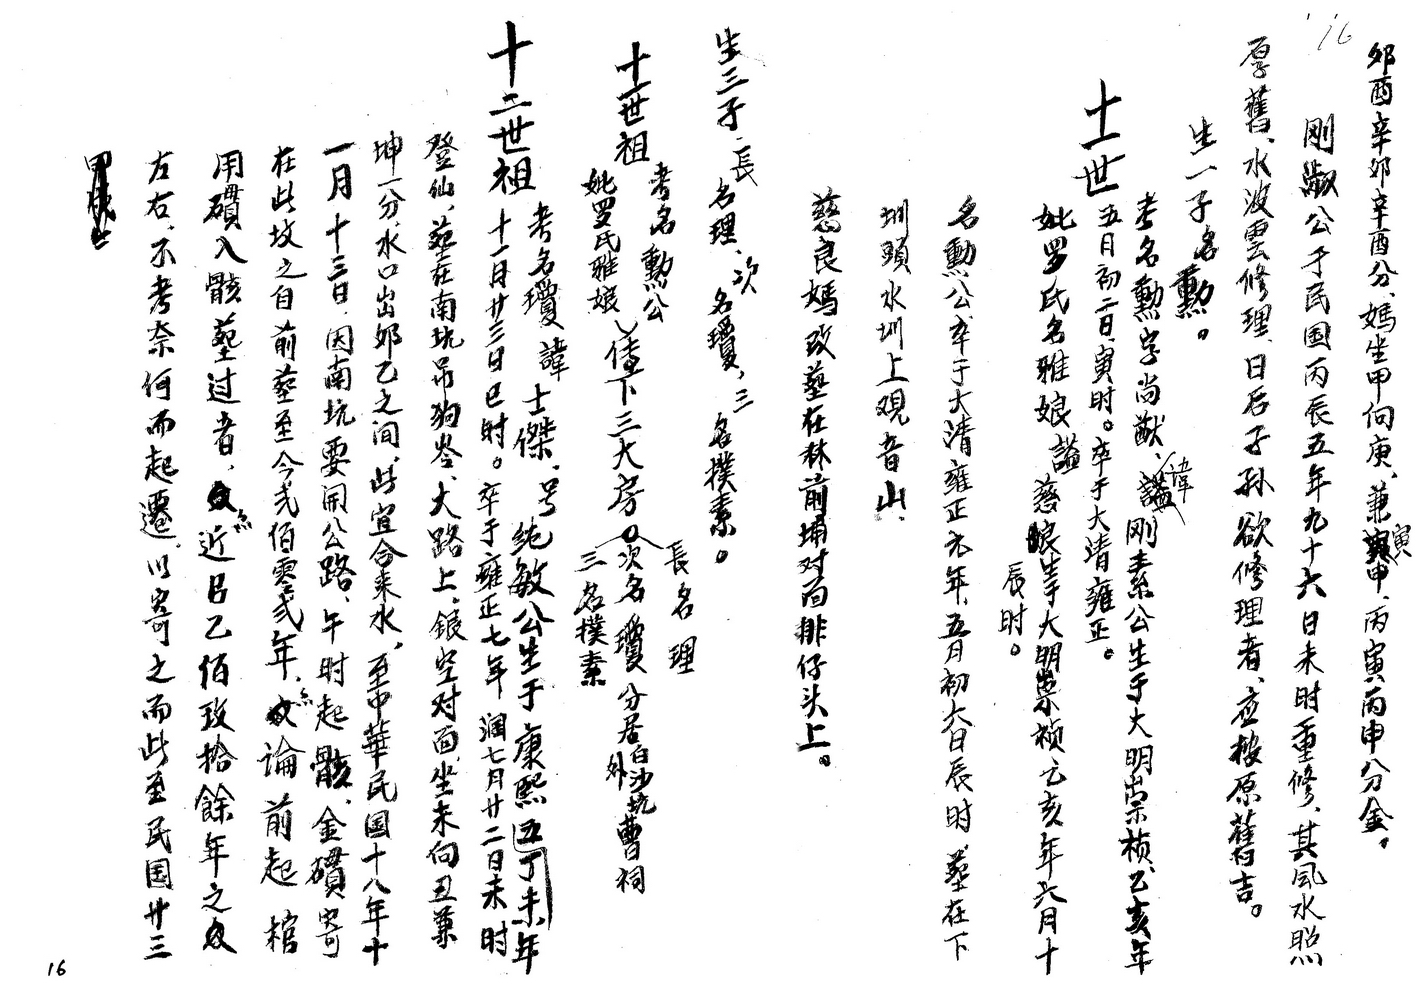 16
卯酉辛卯辛酉分、媽坐甲向庚、兼寅申、丙寅丙申分金。
剛淑公于民国丙辰五年九十六日未时重修、其風水照
厚舊、水波雲修理、日后子孙欲修理者、应按原舊吉。
生一子名勳。
十一世
考名勳字尚猷、諱謚剛素公生于大明崇禎、乙亥年
五月初二日、寅时。卒于大清雍正。
妣罗氏名雅娘謚慈娘生于大明崇禎乙亥年六月十
辰时。
名勳公、卒于大清雍正元年、五月初六日辰时、墓在下
圳頭水圳上观音山、
慈良媽改墓在林前埔对面排仔头上。
生三子、長名理、次名瓊、三名撲素。
十一世祖
考名勳公
妣罗氏雅娘
传下三大房。
長名理
次名瓊分居白沙坑外曹祠
三名撲素
十二世祖
考名瓊諱士傑、号纯敏公生于康熙五丁未年
十一月廿三日巳时。卒于雍正七年潤七月廿二日未时
登仙、墓在南坑吊狗岺、大路上、銀空对面、坐未向丑兼
坤一分、水口出卯乙之间、此宜合来水、至中華民国十八年十
一月十三日、因南坑要開公路、午时起骸、金礩寄
在此坟之自前墓至今弍佰零弍年、論前起棺
用礩入骸墓过者、近已乙佰玖拾餘年之
左右、不考奈何而起遷、以寄之而此至民国廿三
16